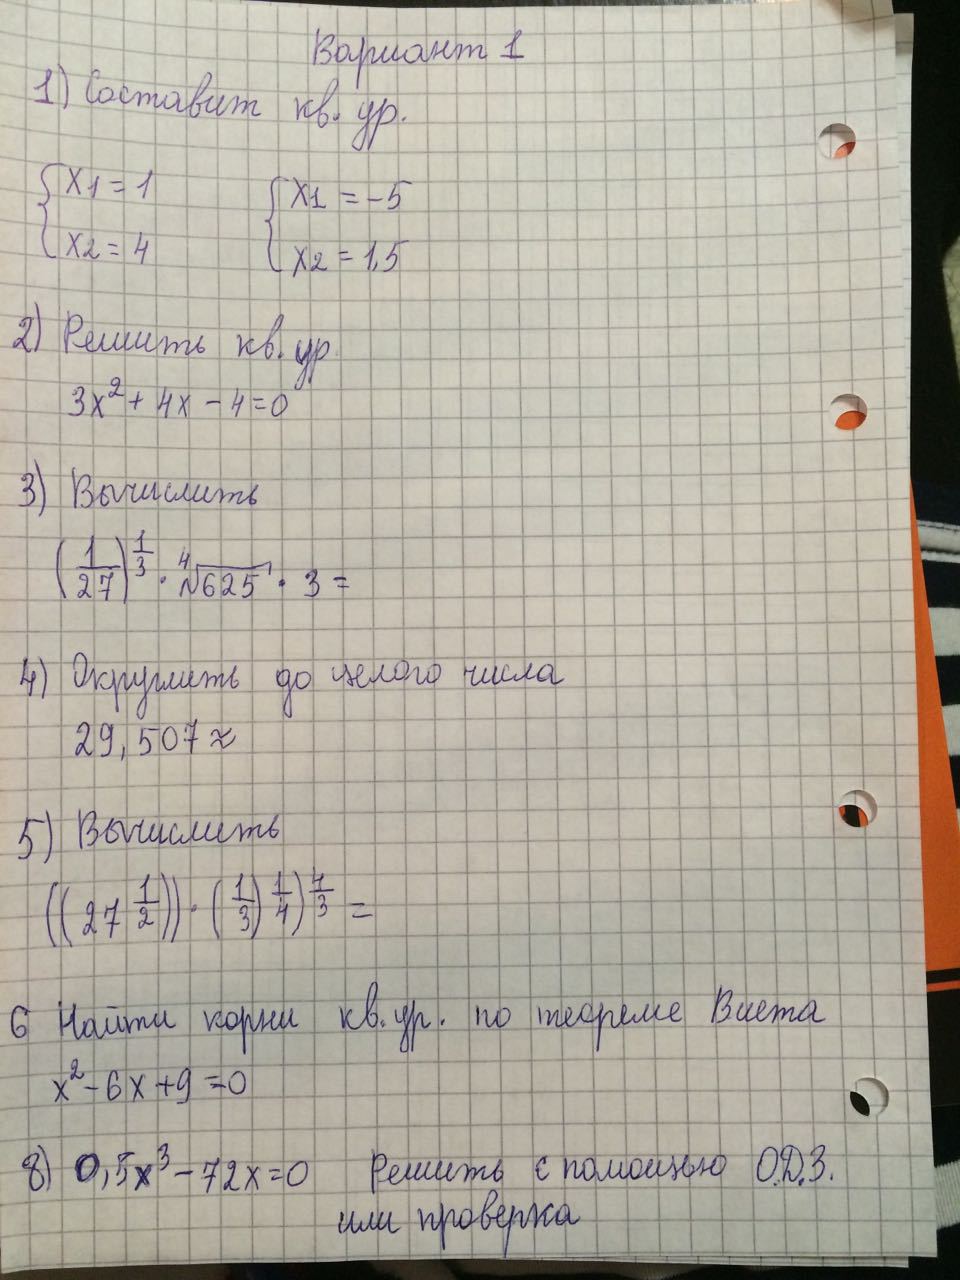 Вариант 1
1) Составит кв. ур.
{x1 = 1 {x1 = -5
{x2 = 4 {x2 = 1,5
2) Решить кв. ур.
3x² + 4x - 4 = 0
3) Вычислить
(1/27)^(1/3) · ⁴√625 · 3 =
4) Округлить до целого числа
29,507 ≈
5) Вычислить
((27^(1/2)) · (1/3)^(1/4))^(4/3) =
6 Найти корни кв. ур. по теореме Виета
x² - 6x + 9 = 0
8) 0,5x³ - 72x = 0 Решить с помощью О.Д.З.
или проверка